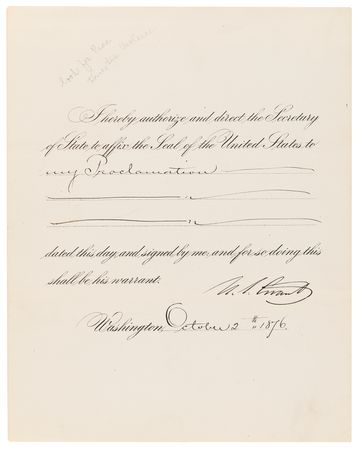 I hereby authorize and direct the Secretary
of State to affix the Seal of the United States to
my Proclamation
dated this day, and signed by me, and for so doing this
shall be his warrant.
U. S. Grant
Washington, October 2th 1876.